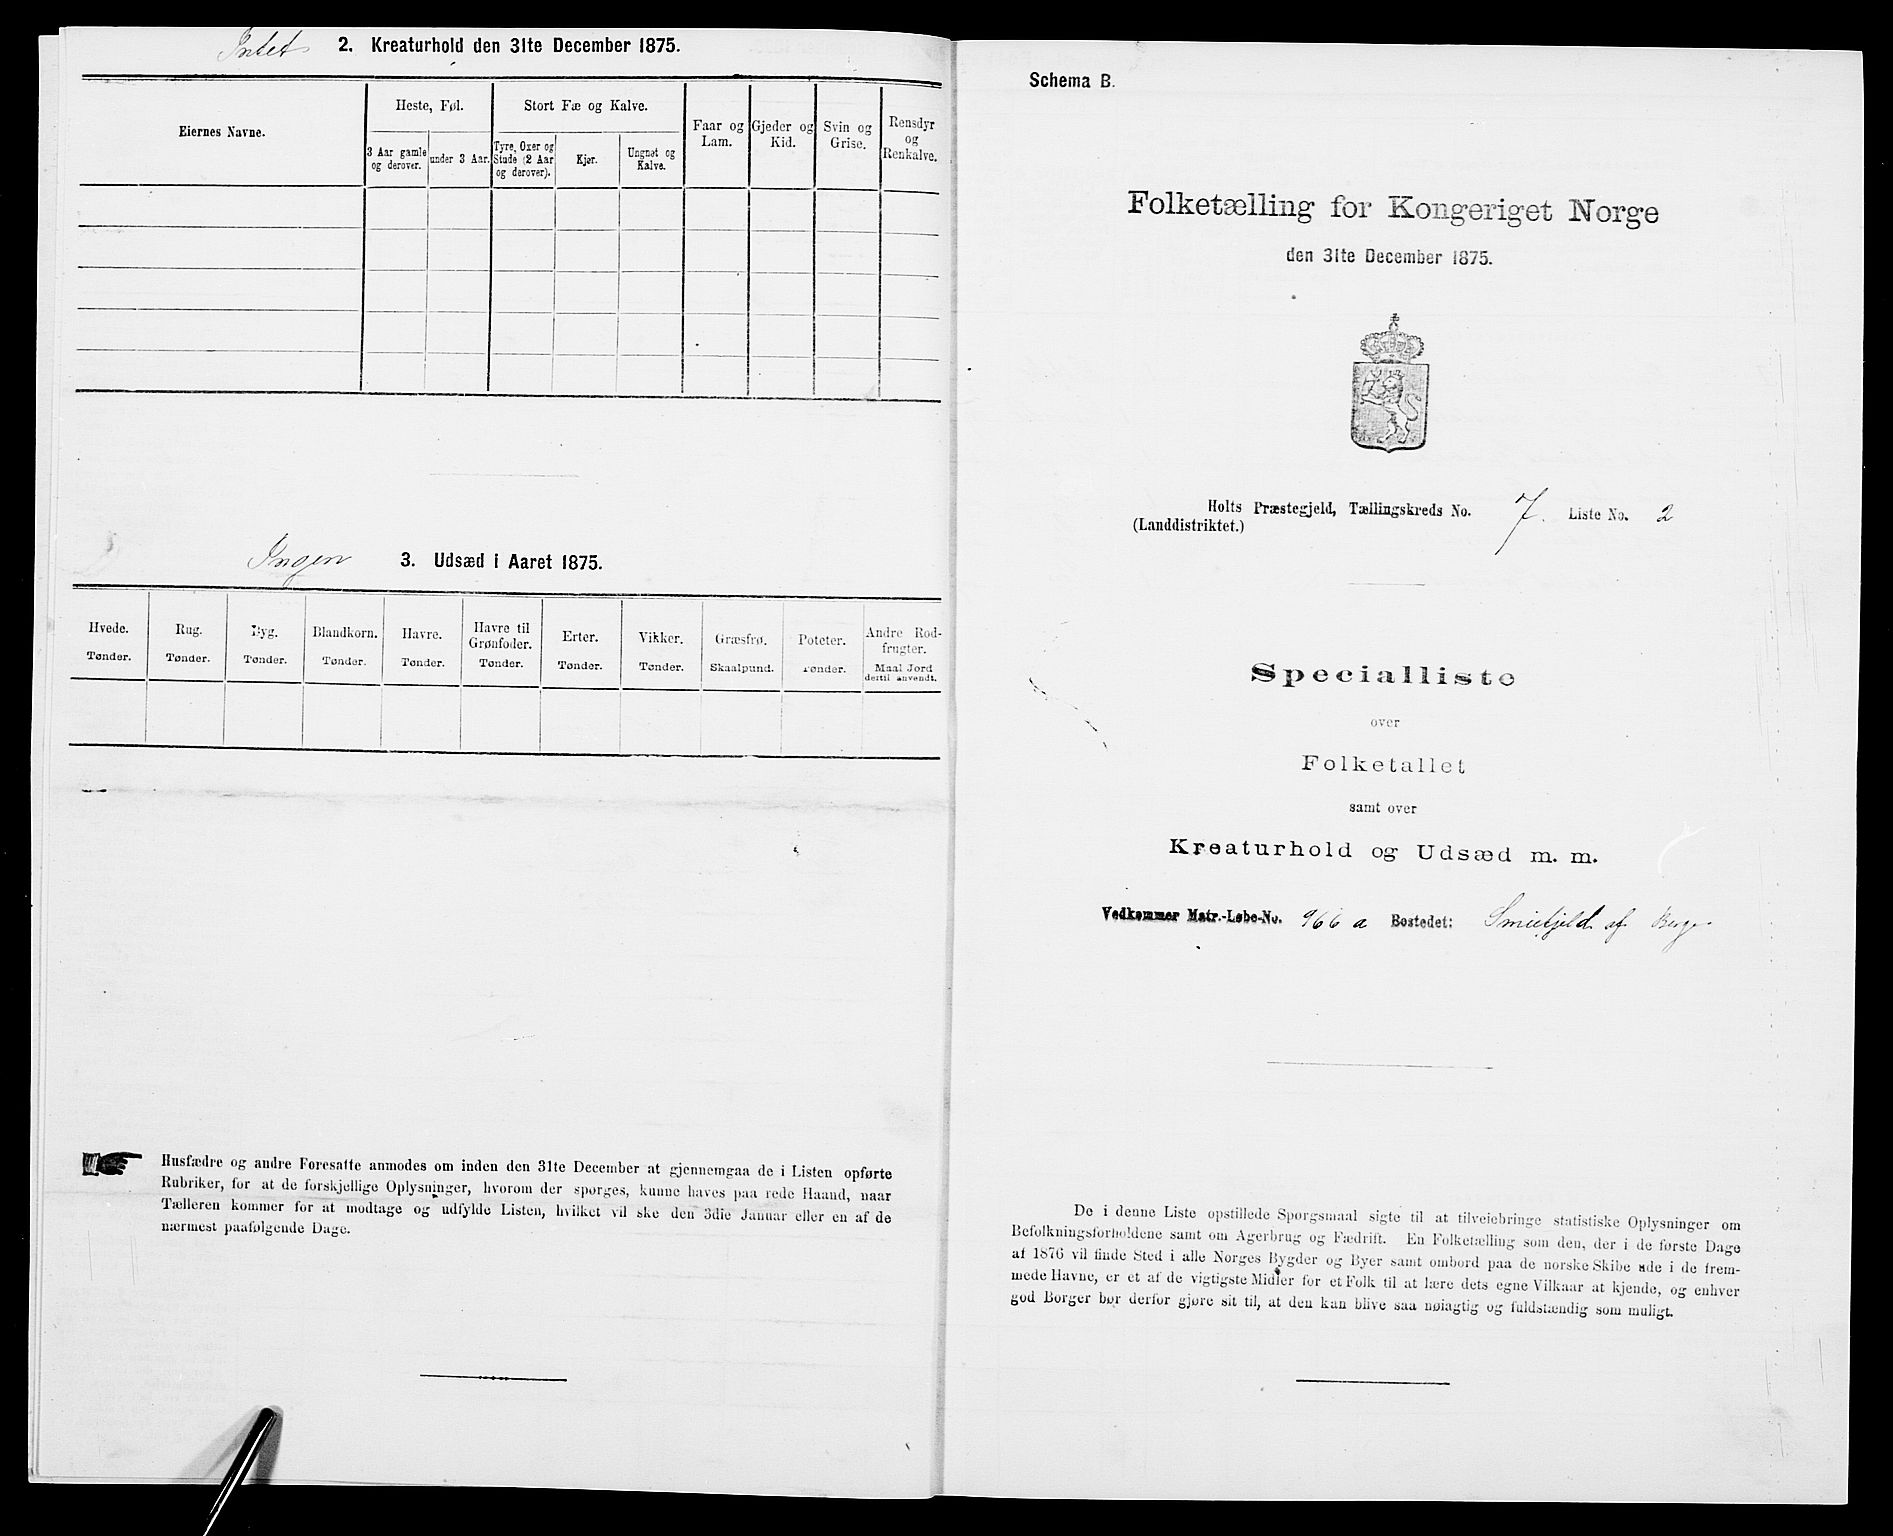 Intet 2. Kreaturhold den 31te December 1875.
Eiernes Navne.
Heste, Føl.
Stort Fæ og Kalve.
Faar og
Lam.
Gjeder og
Kid.
Svin og
Grise.
Rensdyr
og
Renkalve.
3 Aar gamle
og derover.
under 3 Aar.
Tyre, Oxer og
Stude (2 Aar
og derover).
Kjør.
Ungnøt og
Kalve.
Ingen 3. Udsæd i Aaret 1875.
Hvede.
Tønder.
Rug.
Tønder.
Byg.
Tønder.
Blandkorn.
Tønder.
Havre.
Tønder.
Havre til
Grønfoder.
Tønder.
Erter.
Tønder.
Vikker.
Tønder.
Græsfrø.
Skaalpund.
Poteter.
Tønder.
Andre Rod-
frugter.
Maal Jord
dertil anvendt.
Husfædre og andre Foresatte anmodes om inden den 31te December at gjennemgaa de i Listen opførte
Rubriker, for at de forskjellige Oplysninger, hvorom der spørges, kunne haves paa rede Haand, naar
Tælleren kommer for at modtage og udfylde Listen, hvilket vil ske den 3die Januar eller en af de
nærmest paafølgende Dage.
Schema B.
Folketælling for Kongeriget Norge
den 31te December 1875.
Holts Præstegjeld, Tællingskreds No. 7. Liste No. 2
(Landdistriktet.)
Specialliste
over
Folketallet
samt over
Kreaturhold og Udsæd m. m.
Vedkommer Matr.-Løbe-No. 966 a Bostedet: Smiefjeld af Berge
De i denne Liste opstillede Spørgsmaal sigte til at tilveiebringe statistiske Oplysninger om
Befolkningsforholdene samt om Agerbrug og Fædrift. En Folketælling som den, der i de første Dage
af 1876 vil finde Sted i alle Norges Bygder og Byer samt ombord paa de norske Skibe ude i de frem-
mede Havne, er et af de vigtigste Midler for et Folk til at lære dets egne Vilkaar at kjende, og enhver
god Borger bør derfor gjøre sit til, at den kan blive saa nøiagtig og fuldstændig som muligt.